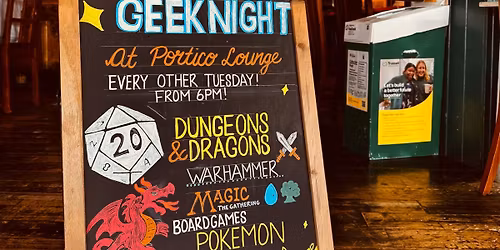 GEEK NIGHT
At Portico Lounge
EVERY OTHER TUESDAY!
FROM 6PM!
20
8
DUNGEONS
& DRAGONS
WARHAMMER..
MAGIC
THE GATHERING
BOARDGAMES
POKEMON
Let's build
a better future
together